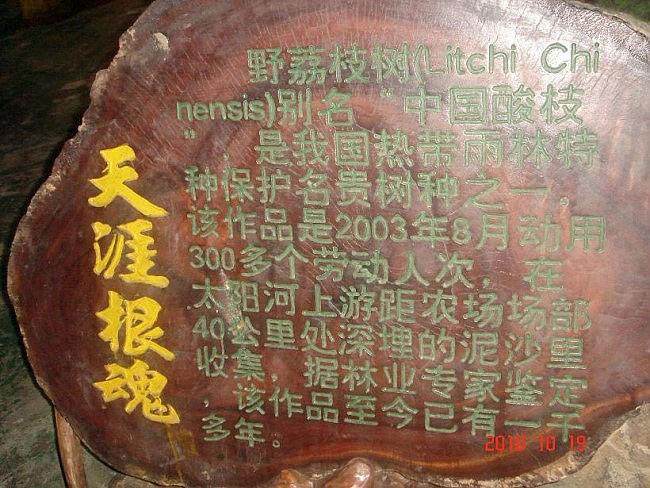 天涯根魂
野荔枝树(Litchi Chi
nensis)别名“中国酸枝
”，是我国热带雨林特
种保护名贵树种之一。
该作品是2003年8月动用
300多个劳动人次，在
太阳河上游距农场场部
40公里处深埋的泥沙里
收集，据林业专家鉴定
，该作品至今已有一千
多年。
2010 10 19